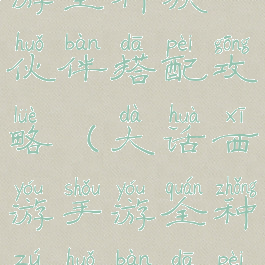 huǒ bàn dā pèi gōng
伙伴搭配攻
lüè dà huà xī
略（大话西
yóu shǒu yóu quán zhǒng
游手游全种
zú huǒ bàn dā pèi